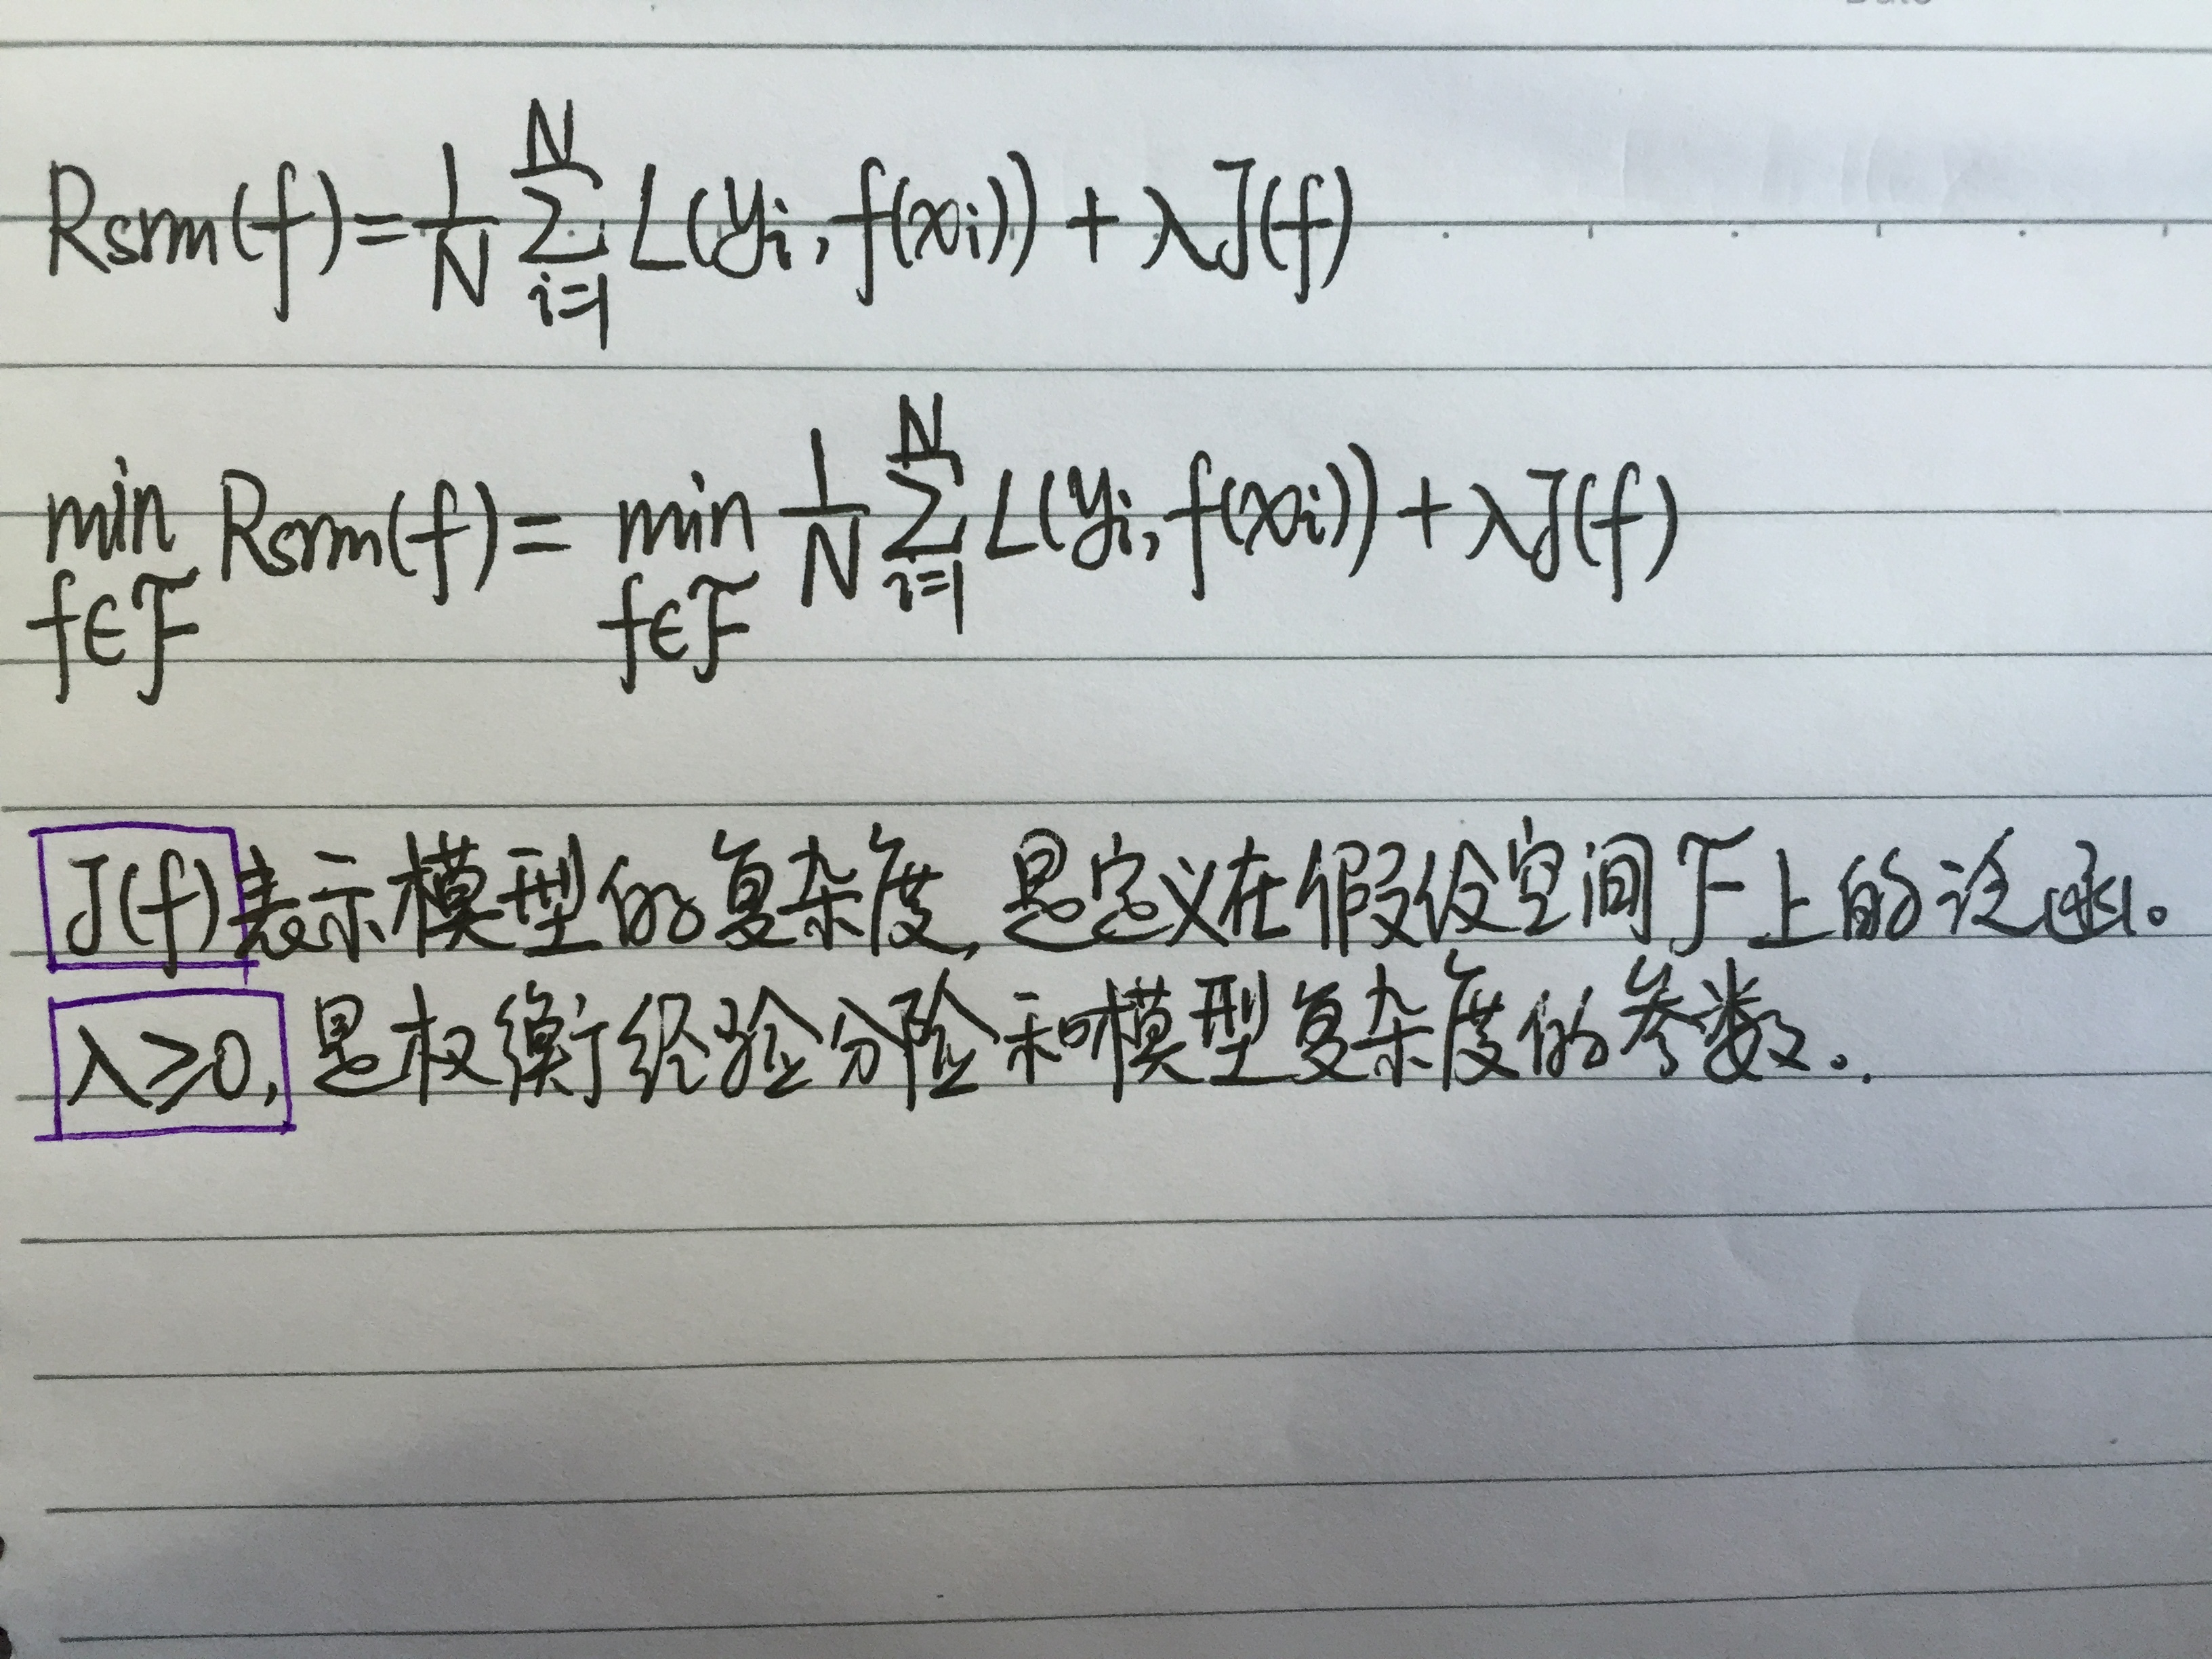 Rsrm(f)=1/N ∑_{i=1}^{N} L(yi, f(xi)) + λJ(f)
min_{f∈F} Rsrm(f) = min_{f∈F} 1/N ∑_{i=1}^{N} L(yi, f(xi)) + λJ(f)
J(f)表示模型的复杂度,是定义在假设空间F上的泛函。
λ≥0,是权衡经验分险和模型复杂度的参数。